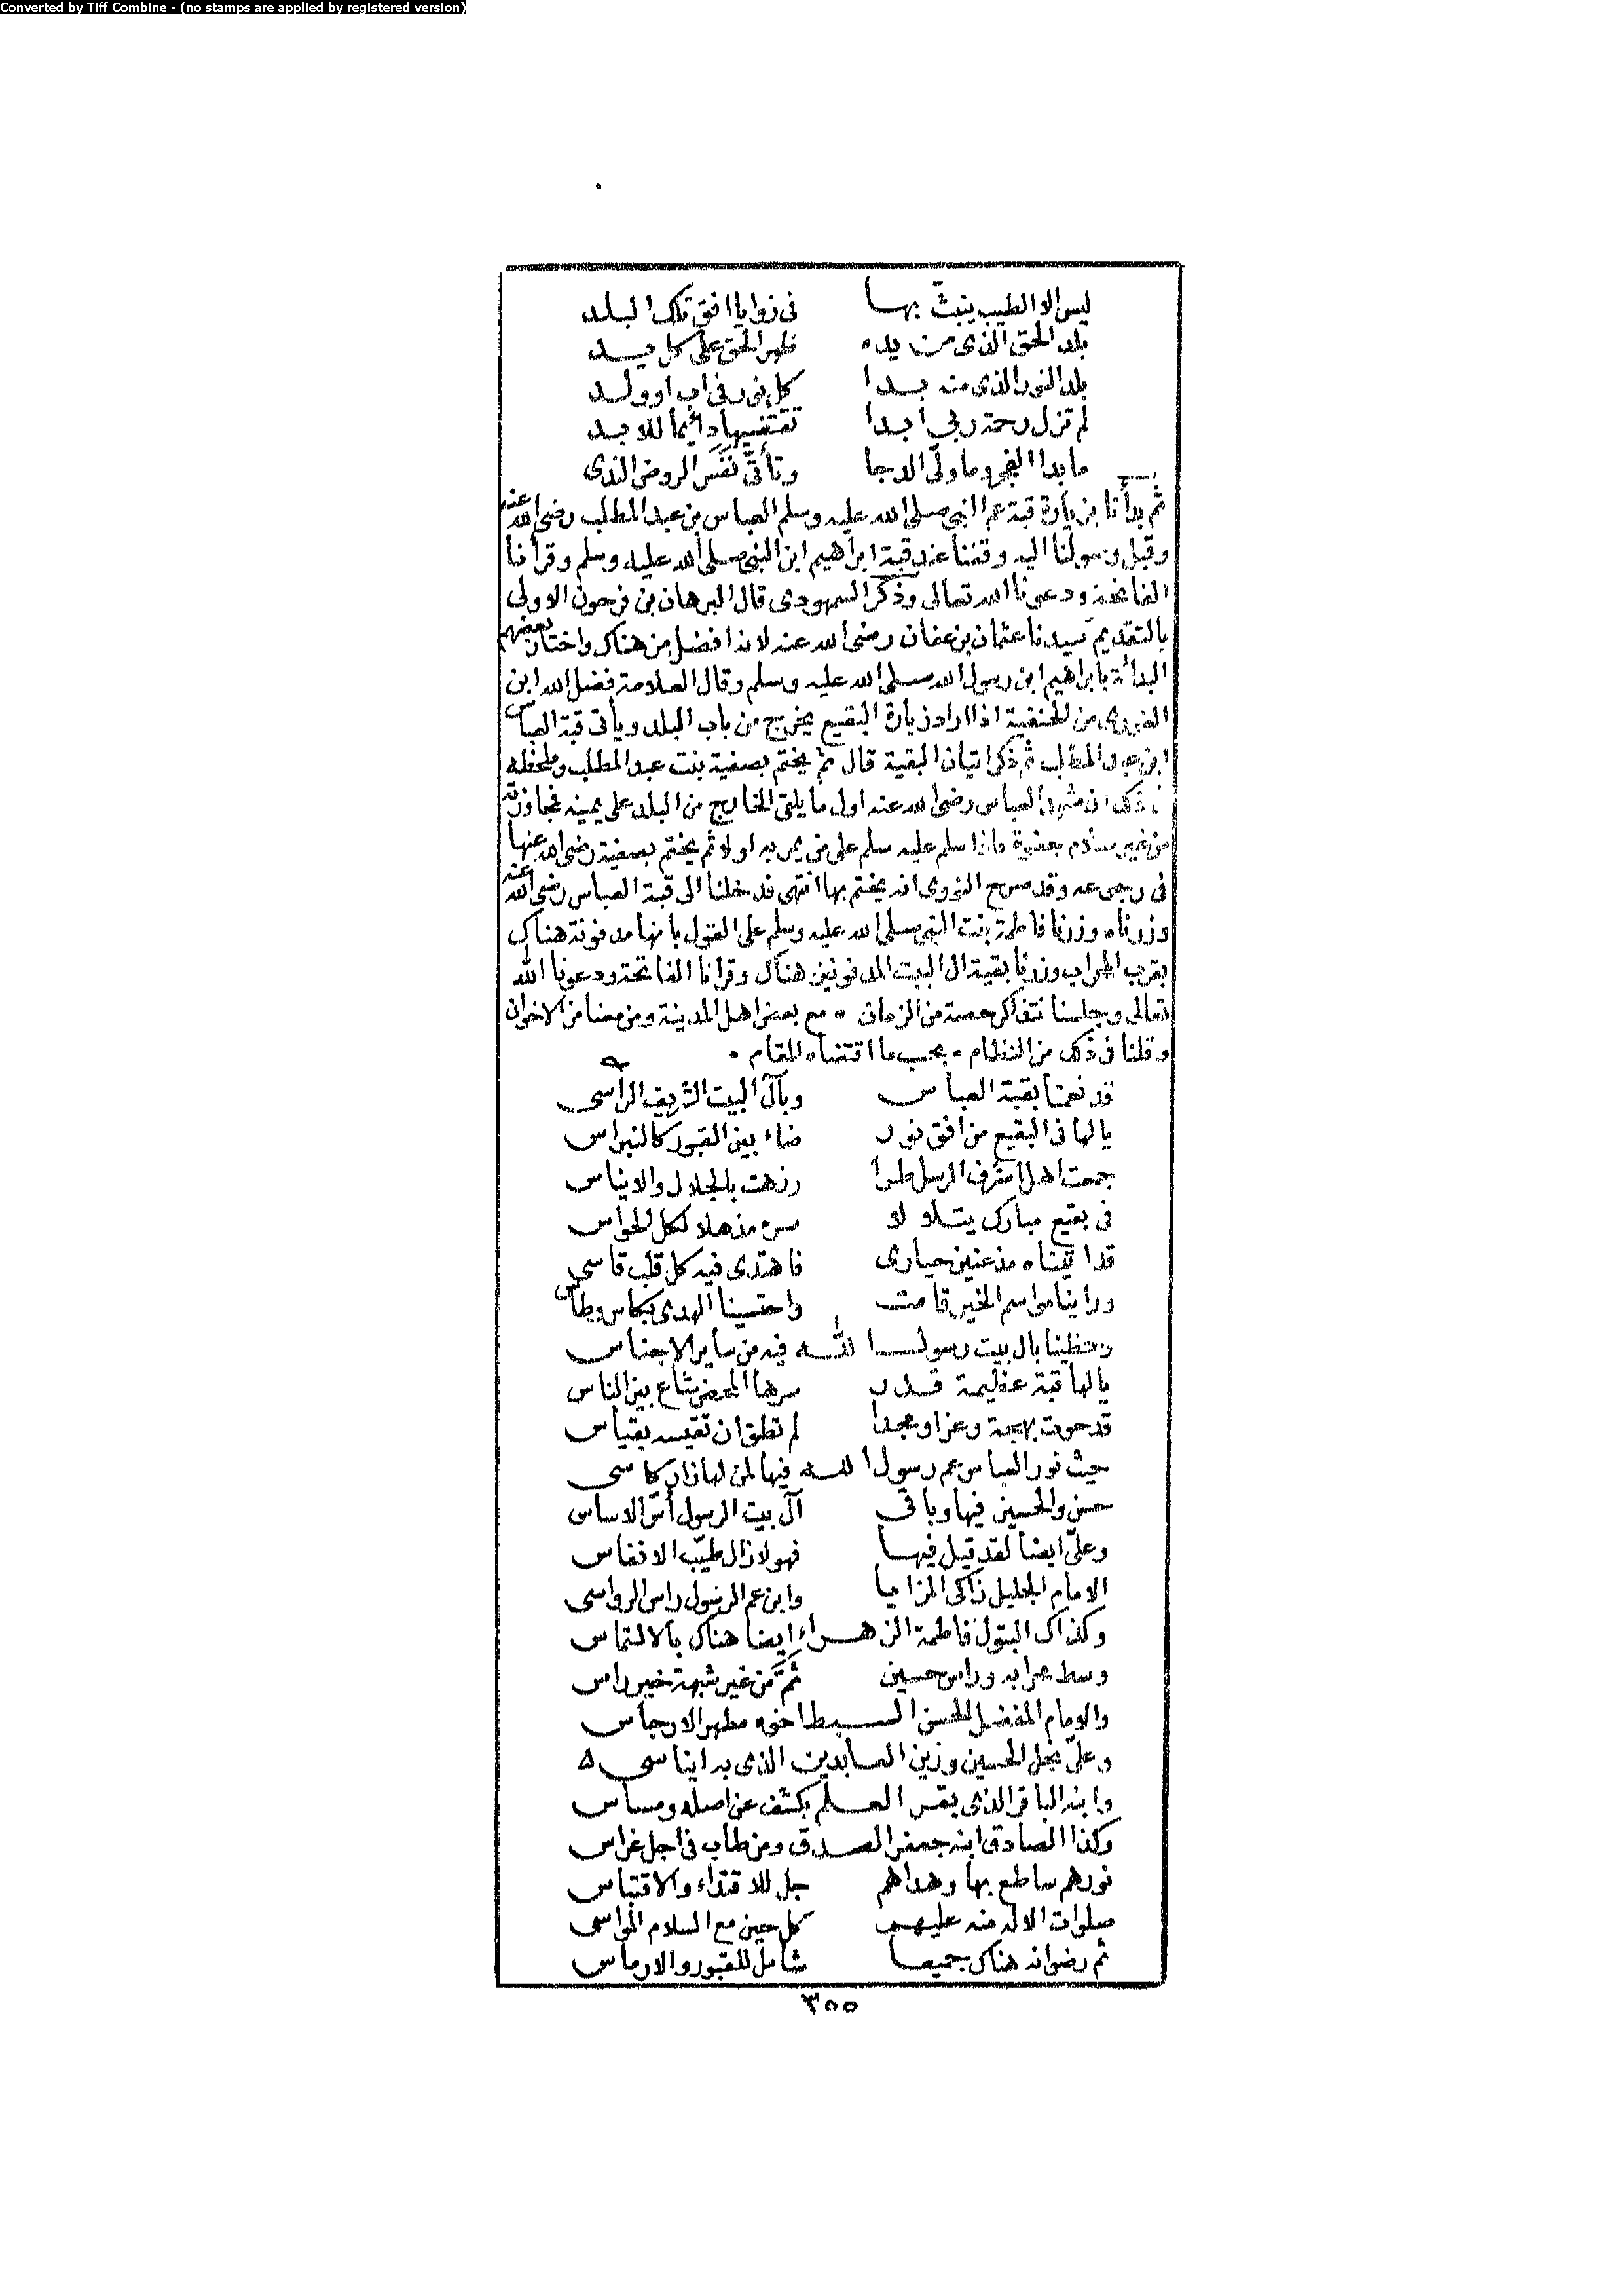 Converted by Tiff Combine - (no stamps are applied by registered version)
ليس الا الطيب ينبثّ بها في زوايا افق تلك البلد
بلد الحق الذى من يده ظهر الحق على كل يد
بلد النور الذى منه بدا كل نور فى اب او ولد
لم تزل رحمة ربى ابدا تقتفيها دائما للابد
ما بدا الفجر وما ولّى الدجا وتأتّى نفَس الروض الندى
ثم بدأنا بزيارة قبة عم النبى صلى الله عليه وسلم العباس بن عبد المطلب رضى الله عنه
وقبل وصولنا اليه وقفنا عند قبة ابراهيم ابن النبى صلى الله عليه وسلم وقرأنا
الفاتحة ودعونا الله تعالى وذكر السمهودى قال البرهان بن فرحون الاولى
بالتقديم سيدنا عثمان بن عفان رضى الله عنه لانه افضل من هناك واختار بعضهم
البدأة بابراهيم ابن رسول الله صلى الله عليه وسلم وقال العلامة فضل الله ابن
الغورى من الحنفية اذا اراد زيارة البقيع يخرج من باب البلد ويأتى قبة العباس
ابن عبد المطلب ثم ذكر اتيان البقية قال ثم يختم بصفية بنت عبد المطلب وملحظه
فى ذكى ان مشهد العباس رضى الله عنه اول ما يلقى الخارج من البلد على يمينه فمجاوزته
من غير سلام جفوة فاذا سلم عليه سلم على من يمر به اولا ثم يختم بصفية رضى الله عنها
فى رجوعه وقد صرح النووى انه يختم بها انتهى فدخلنا الى قبة العباس رضى الله عنه
وزرناه وزرنا فاطمة بنت النبى صلى الله عليه وسلم على القول بانها مدفونة هناك
بقرب المحراب وزرنا بقية ال البيت المدفونين هناك وقرانا الفاتحة ودعونا الله
تعالى وجلسنا نتذاكر حصة من الزمان ٠ مع بعض اهل المدينة ومن معنا من الاخوان
وقلنا فى ذكك من النظام ٠ بحسب ما اقتضاه المقام ٠
قد نعمنا بقبة العباس وبآل البيت الشريف الراسى
يالها فى البقيع من افق نور ضاء بين القبور كالنبراس
جمعت اهل اشرف الرسل طرا وزهت بالجلال والايناس
فى بقيع مبارك يتلالا سره مذهلا لكل الحواس
قد اتيناه مذعنين حيارى فاهتدى فيه كل قلب قاسى
وراينا مواسم الخير قامت واحتسينا الهدى بكاس وطاس
وحظينا بال بيت رسول الله فيه من ساير الاجناس
يالها قبة عظيمة قدر سرها المحض شاع بين الناس
قد حوت بهجة وعزا ومجدا لم تطق ان تقيسه بقياس
حيث نور العباس عم رسول الله فيها لمن لها زار كاسى
حسن والحسين فيها وباقى آل بيت الرسول أسّ الاساس
وعلىّ ايضا لقد قيل فيها فهو لا زال طيّب الانفاس
الامام الجليل زاكى المزايا وابن عم الرسول راس الرواسى
وكذاك البتول فاطمة الزهراء ايضا هناك بالالتماس
وسط محرابه وراس حسين ثَمَّ من غير شبهة خير راس
والامام المفضل الحسن السبط اخوه مطهر الارجاس
وعلىّ نجل الحسين وزين العابدين الذى به ايناسى ٥
وابنه الباقر الذى بقر العلم بكشف عن اصله ومساس
وكذا الصادق ابنه جعفر الصدق ومن طاب فى اجل غراس
نورهم ساطع بها وهداهم جل للاقتداء والاقتباس
صلوات الاله منه عليهم كل حين مع السلام المواسى
ثم رضوانه هناك جميعا شامل للقبور والارماس
٣٥٥